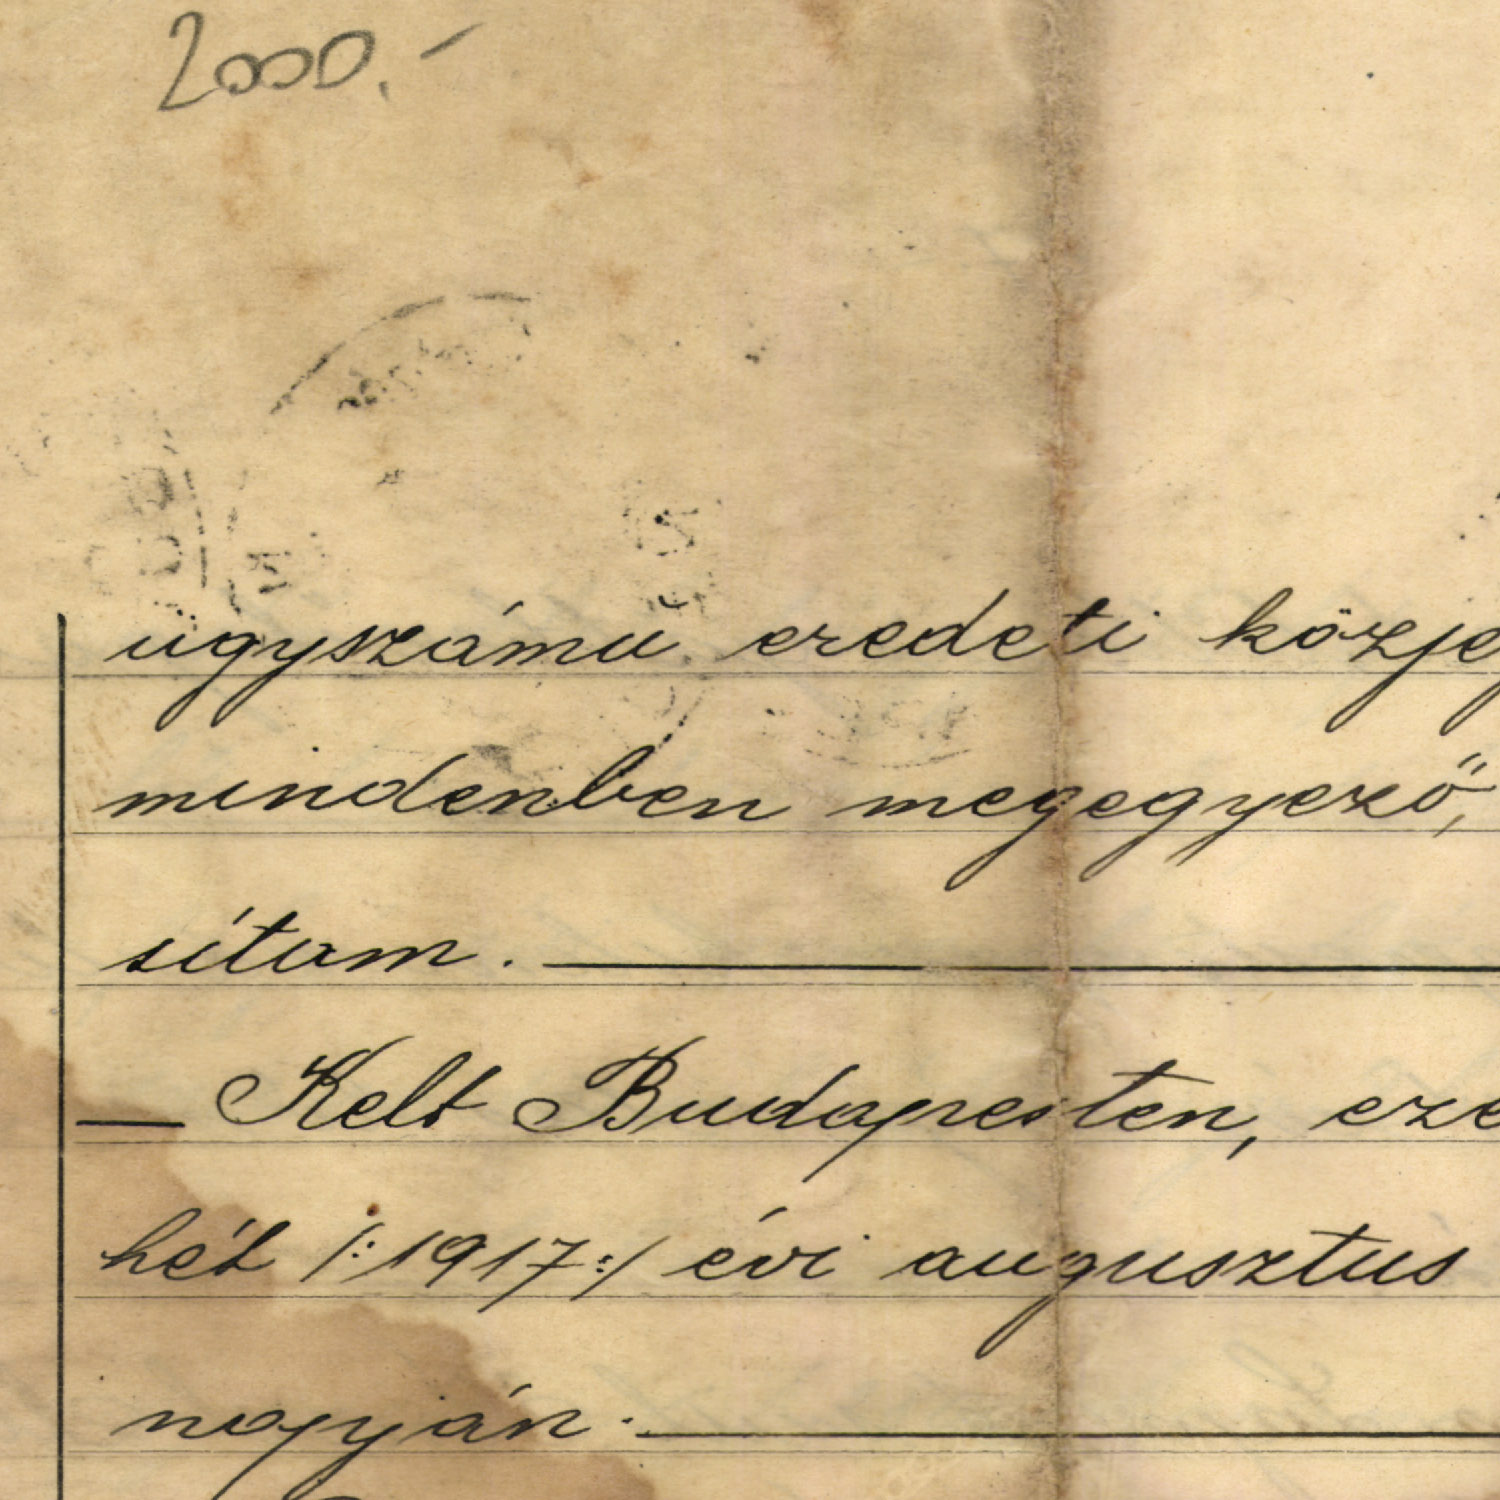 2000.-
ügyszámu eredeti közjeg
mindenben megegyező,
sítom.
— Kelt Budapesten, eze
hét /:1917:/ évi augusztus
napján.